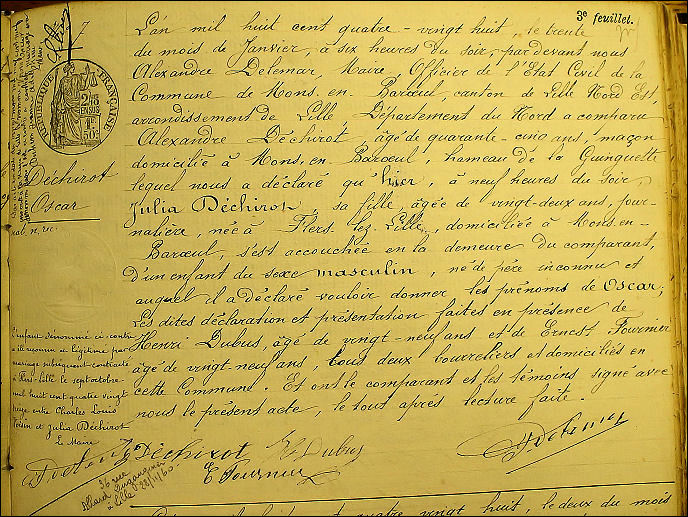 3e feuillet.
L'an mil huit cent quatre-vingt huit, le trente
du mois de Janvier, à six heures du soir, par devant nous
Alexandre Delemar, Maire, Officier de l'Etat Civil de la
Commune de Mons-en-Barœul, canton de Lille Nord Est,
arrondissement de Lille, Département du Nord a comparu
Alexandre Déchirot, âgé de quarante-cinq ans, maçon
domicilié à Mons-en-Barœul, hameau de la Guinguette
lequel nous a déclaré qu'hier, à neuf heures du soir,
Julia Déchirot, sa fille, âgée de vingt-deux ans, jour-
nalière, née à Flers-lez-Lille, domiciliée à Mons-en-
Barœul, s'est accouchée en la demeure du comparant,
d'un enfant du sexe masculin, né de père inconnu et
auquel il a déclaré vouloir donner les prénoms de Oscar;
Les dites déclaration et présentation faites en présence de
Henri Dubus, âgé de vingt-neuf ans et de Ernest Fournier
âgé de vingt-neuf ans, tous deux bourreliers et domiciliés en
cette Commune. Et ont le comparant et les témoins signé avec
nous le présent acte, le tout après lecture faite.
7
RÉPUBLIQUE FRANÇAISE
Déchirot
Oscar
nat. n. rec.
L'enfant dénommé ci-contre
a été reconnu et légitimé par
mariage subséquent contracté
à Flers-Lille le sept octobre
mil huit cent quatre vingt
entre Charles Louis
et Julia Déchirot
Le Maire
Déchirot
H Dubus
A Delemar
E Fournier
36 rue
à Lille
quatre vingt huit, le deux du mois